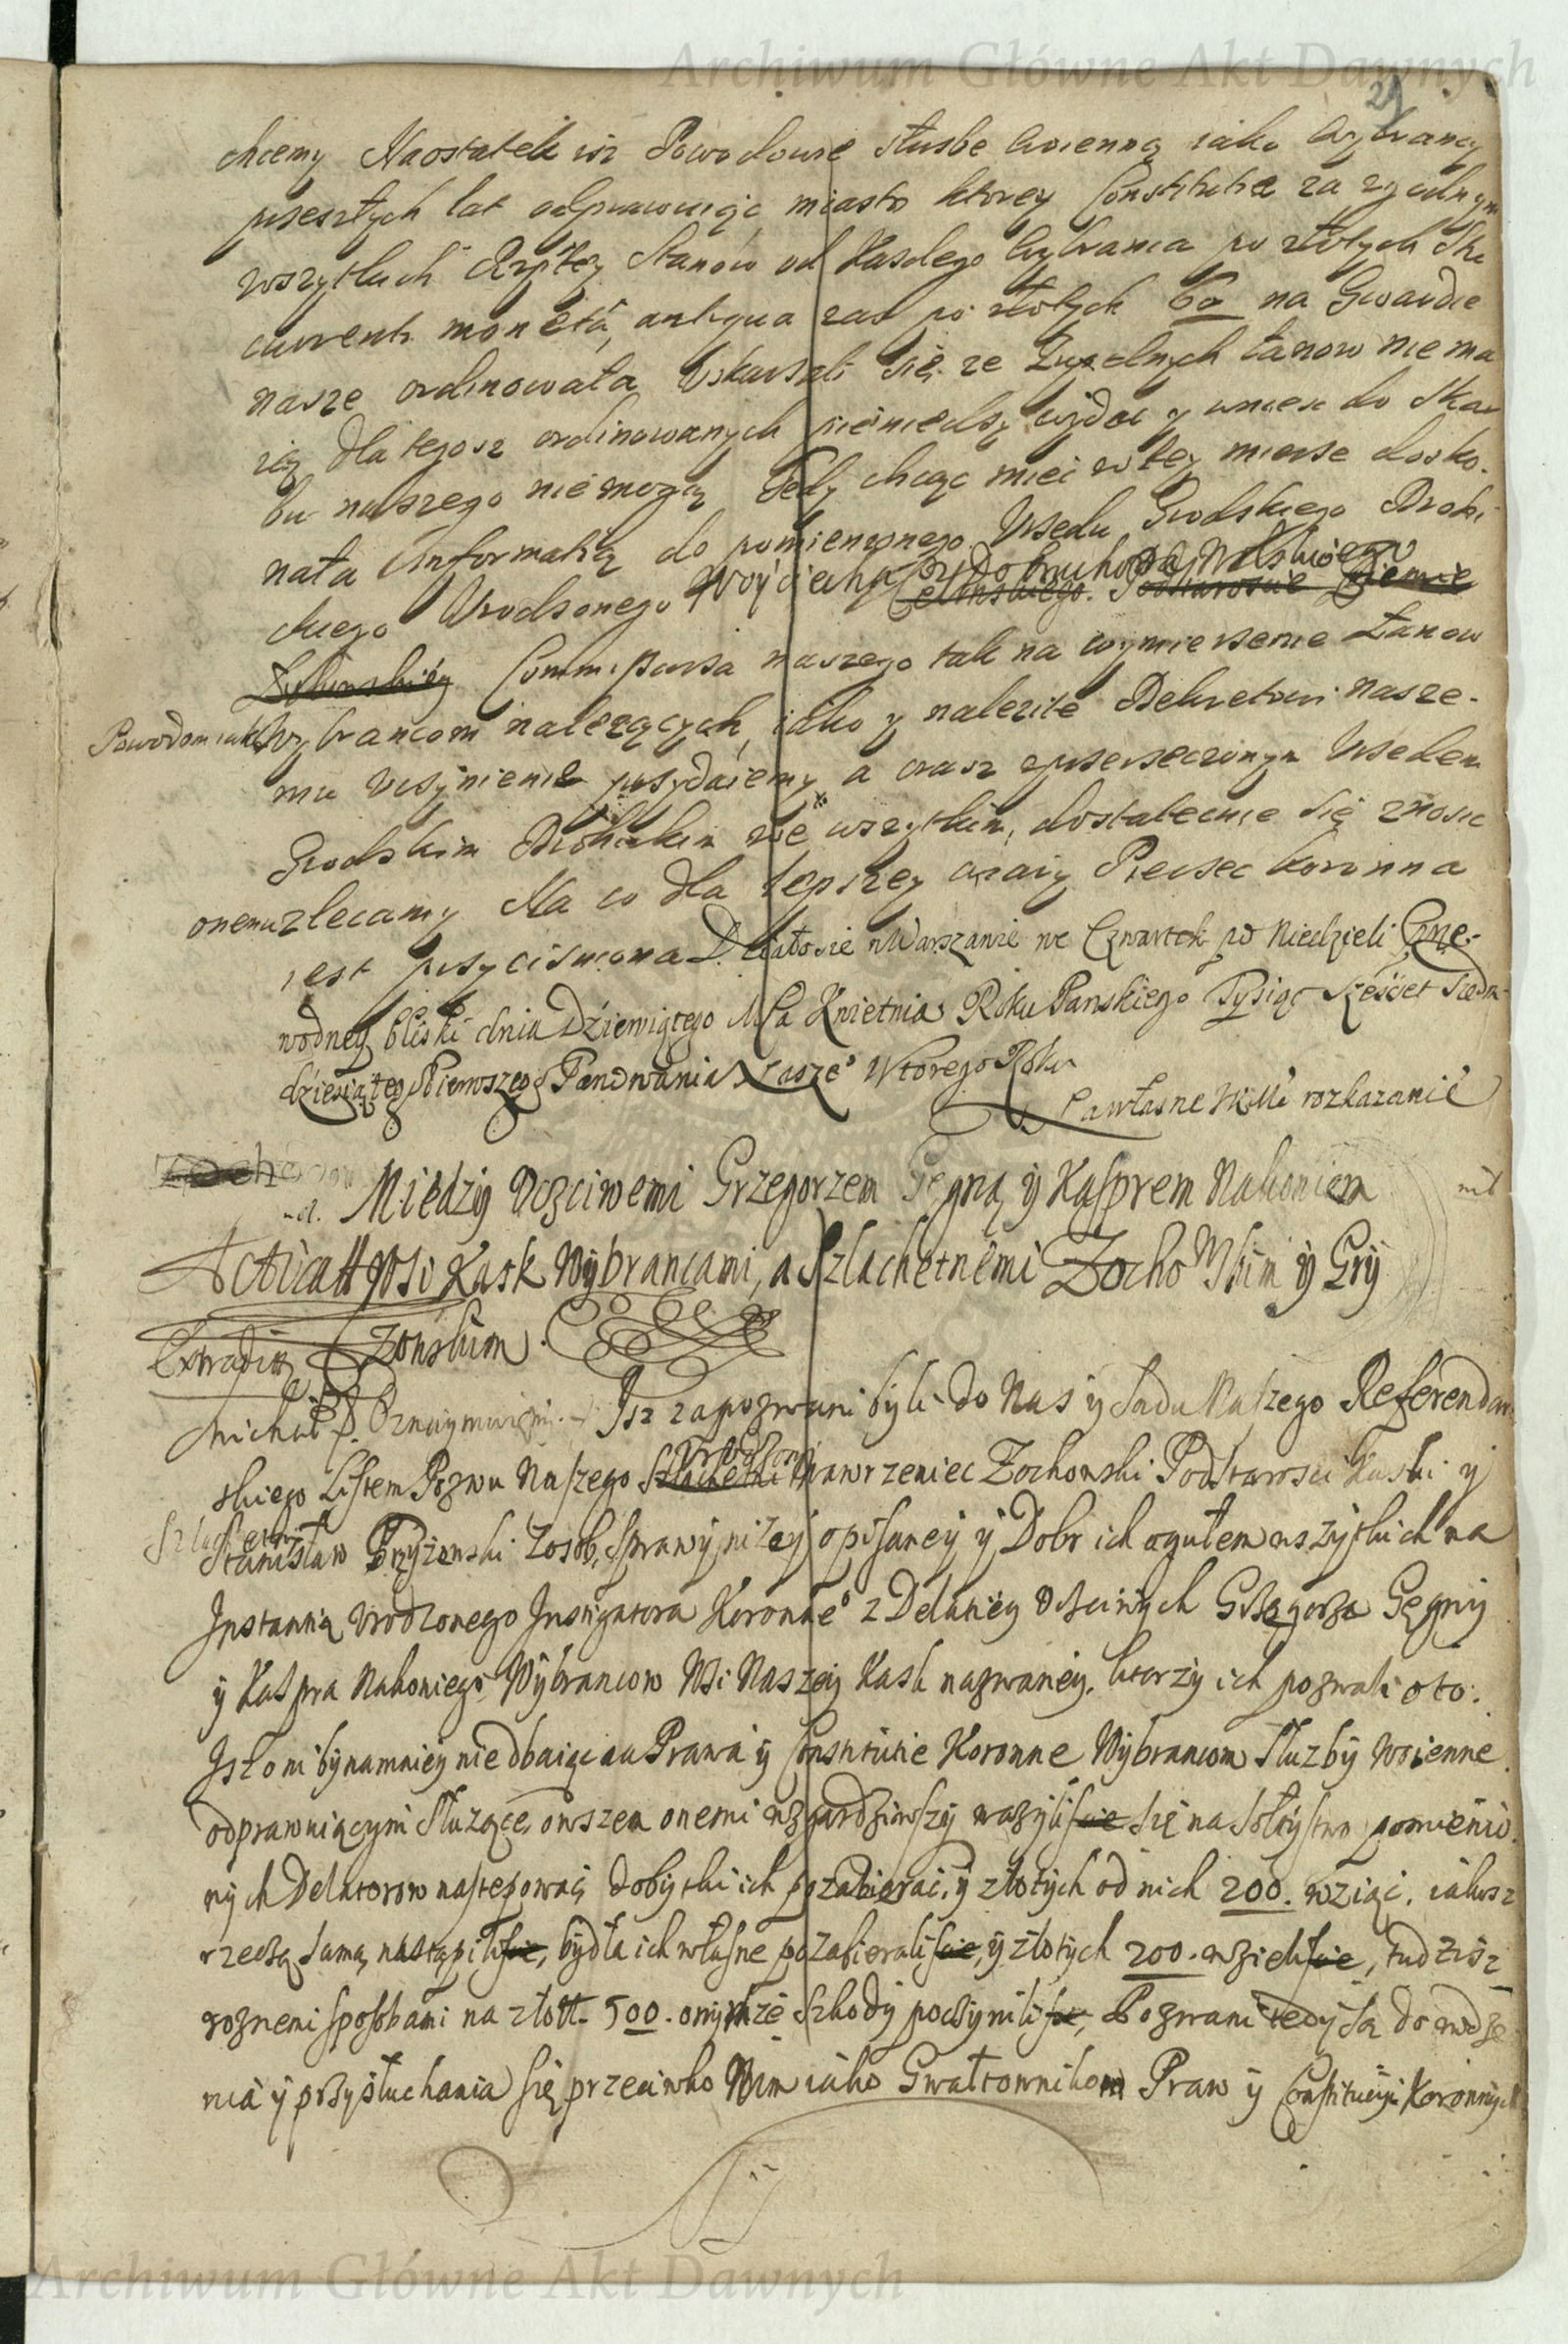 Archiwum Główne Akt Dawnych
29
chcemy Naostatek isz Powodowie słusbe woienną iako wybrancy
pszeszłych lat odprawuiąc, miasto ktorey Constitutia za zgodnym
wszytkich Rzptey Stanow od Kasdego wybranca po złotych Sto
currenti monetą, antiqua zas po złotych 60 na Gwardie
nasze ordinowała Uskarszali się ze Zupelnych łanow niema
ią dla tegosz ordinowanych pieniedzy wydac y wniesc do Skar
bu naszego niemogą Tedy chcąc miec w tey mierse dosko-
nała Informatią do pomienionego Usedu Grodskiego Drohi
ckiego Urodsonego Woyciecha
Celinskiego. Podstarosćie Ziemie
Commissarsa naszego tak na wymiersenie Łanow
Powodom iako Wybrancom nalezących, iako y nalezite Dekretowi nasze-
mu Uczynienie przydaiemy a oraz zpserseczonym Usedem
Grodskim Drohickim we wszytkim, dostatecnie się znosic
onemu zlecamy Na co dla lepszey wiary Piecsec koronna
iest psyciśniona Działosie w Warszawie we Czwartek po Niedzieli Prze-
wodney bliski dnia Dziewiątego Msca Kwietnia Roku Panskiego Tysiąc Sześćset Siedm-
dziesiątego Pierwszego Panowania Naszego Wtorego Roku
Za własne JKMci rozkazanie
nil
Miedzy Uczciwemi Grzegorzem Gęgną y Kasprem Nakoniem
Actica# Wsi Kask Wybrancami, a Szlachetnemi Zochowskim y Gry
Extradit# zonskim
Michał P. Oznaymuiemy. Isz zapozwani byli do Nas y Sadu Naszego Referendar
skiego Listem Pozwu Naszego Szlachetni Urodzony Wawrzeniec Zochowski Podstarosci Kaski y
Szlachetni
Stanisław Gryzonski Zosob, Sprawy nizey opisaney y Dobr ich ogułem wszytkich na
Instantią Urodzonego Instigatora Koronnego z Delatiey Uczciwych Grzegorza Gęgny
y Kaspra Nakoniego Wybrancow Wsi Naszey Kask nazwaney. ktorzy ich pozwali oto.
Isz oni bynamniey nie dbaiąc na Prawa y Constitutie Koronne Wybrancom Słuzby Woienne
odprawuiącym Słuzące, owszem onemi wzgardziwszy wazyliscie się na Sołtystwo pomienio
nych Delatorow nastepować, dobytki ich pozabierać, y złotych od nich 200. wziąc, iakosz
rzeczą samą nastąpiliscie, bydła ich własne pozabieraliscie, y złotych 200. wzieliscie, tudzisz
roznemi sposobami na złott. 500. onymze szkody poczyniliscie, Pozwani tedy są do widze
nia y przysłuchania się przeciwko Nim iako Gwałtownikom Praw y Constituciy Koronnych
Archiwum Główne Akt Dawnych